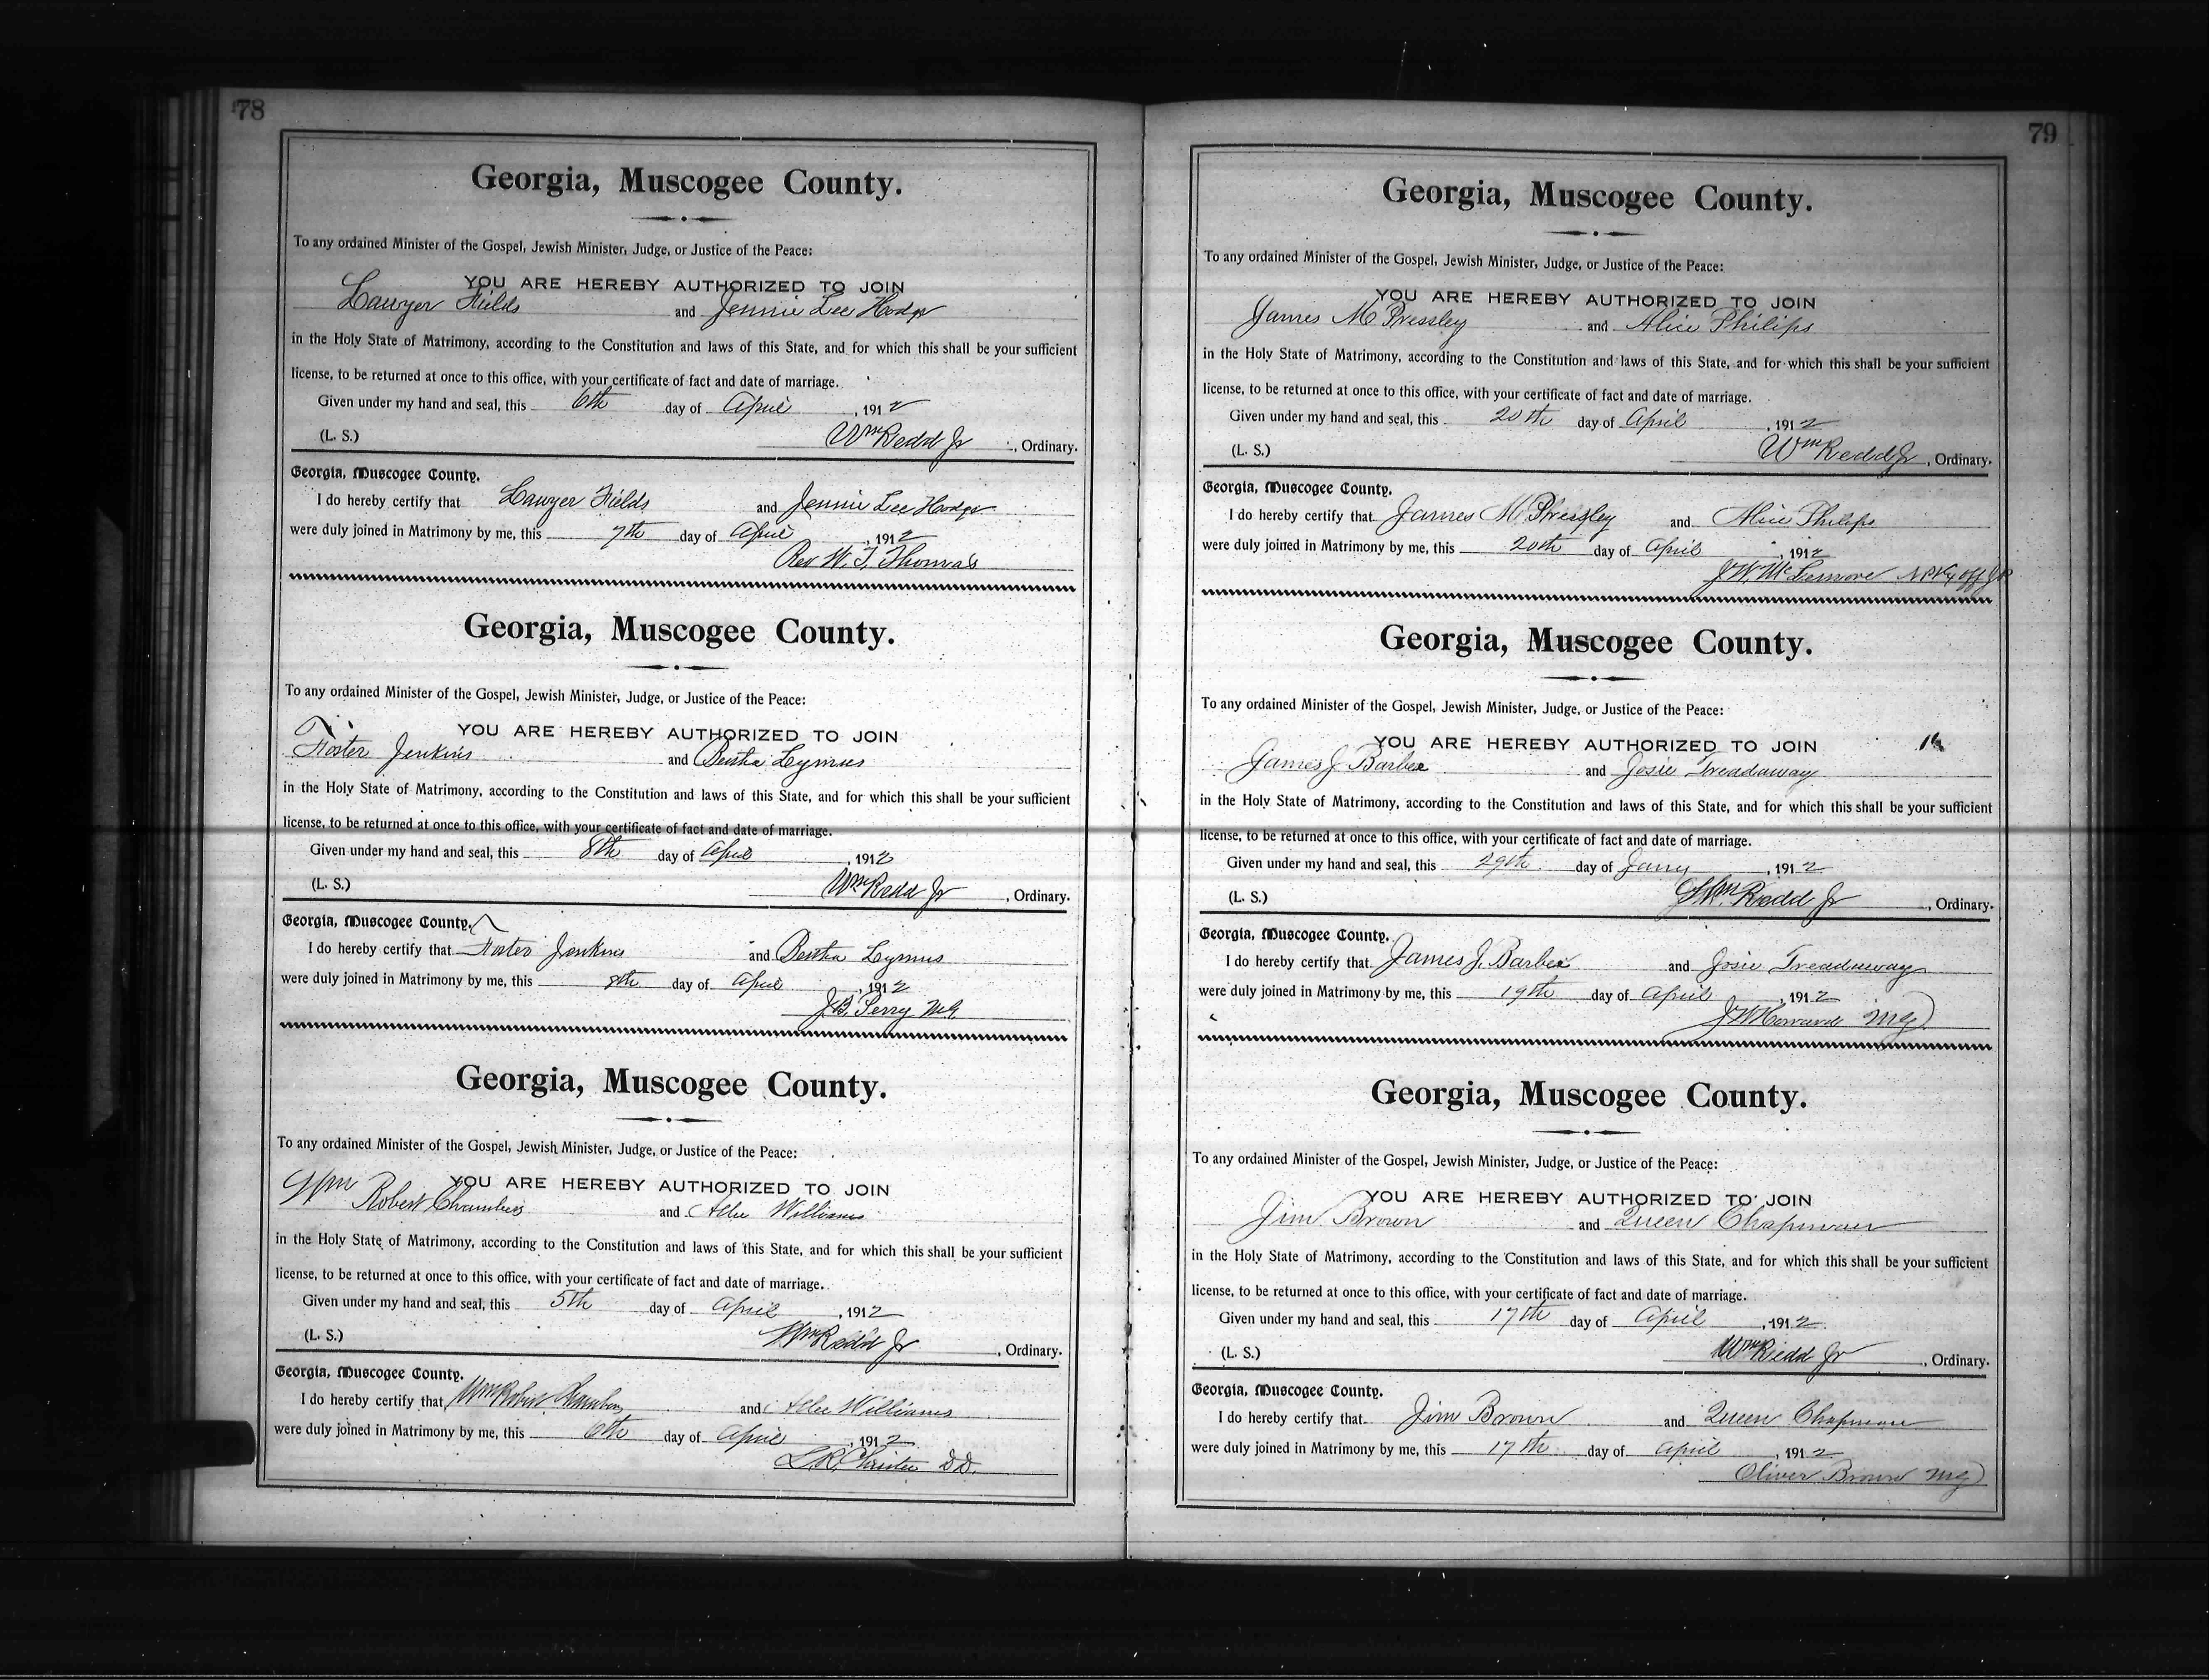 78
Georgia, Muscogee County.
To any ordained Minister of the Gospel, Jewish Minister, Judge, or Justice of the Peace:
YOU ARE HEREBY AUTHORIZED TO JOIN
Lawyer Fields and Jennie Lee Hodge
in the Holy State of Matrimony, according to the Constitution and laws of this State, and for which this shall be your sufficient
license, to be returned at once to this office, with your certificate of fact and date of marriage.
Given under my hand and seal, this 6th day of April, 1912
(L. S.) Wm Redd Jr, Ordinary.
Georgia, Muscogee County.
I do hereby certify that Lawyer Fields and Jennie Lee Hodge
were duly joined in Matrimony by me, this 7th day of April, 1912
Rev W. T. Thomas
Georgia, Muscogee County.
To any ordained Minister of the Gospel, Jewish Minister, Judge, or Justice of the Peace:
YOU ARE HEREBY AUTHORIZED TO JOIN
Foster Jenkins and Bertha Lymus
in the Holy State of Matrimony, according to the Constitution and laws of this State, and for which this shall be your sufficient
license, to be returned at once to this office, with your certificate of fact and date of marriage.
Given under my hand and seal, this 8th day of April, 1912
(L. S.) Wm Redd Jr, Ordinary.
Georgia, Muscogee County.
I do hereby certify that Foster Jenkins and Bertha Lymus
were duly joined in Matrimony by me, this 8th day of April, 1912
J. B. Perry M.G.
Georgia, Muscogee County.
To any ordained Minister of the Gospel, Jewish Minister, Judge, or Justice of the Peace:
YOU ARE HEREBY AUTHORIZED TO JOIN
Wm Robert Chambers and Williams
in the Holy State of Matrimony, according to the Constitution and laws of this State, and for which this shall be your sufficient
license, to be returned at once to this office, with your certificate of fact and date of marriage.
Given under my hand and seal, this 5th day of April, 1912
(L. S.) Wm Redd Jr, Ordinary.
Georgia, Muscogee County.
I do hereby certify that Wm Robert Chambers and Williams
were duly joined in Matrimony by me, this 6th day of April, 1912
L. R. Christie D.D.
79
Georgia, Muscogee County.
To any ordained Minister of the Gospel, Jewish Minister, Judge, or Justice of the Peace:
YOU ARE HEREBY AUTHORIZED TO JOIN
James M Pressley and Alice Philips
in the Holy State of Matrimony, according to the Constitution and laws of this State, and for which this shall be your sufficient
license, to be returned at once to this office, with your certificate of fact and date of marriage.
Given under my hand and seal, this 20th day of April, 1912
(L. S.) Wm Redd Jr, Ordinary.
Georgia, Muscogee County.
I do hereby certify that James M. Pressley and Alice Philips
were duly joined in Matrimony by me, this 20th day of April, 1912
J. W. McLemore
Georgia, Muscogee County.
To any ordained Minister of the Gospel, Jewish Minister, Judge, or Justice of the Peace:
YOU ARE HEREBY AUTHORIZED TO JOIN
James J Barber and Josie Treadaway
in the Holy State of Matrimony, according to the Constitution and laws of this State, and for which this shall be your sufficient
license, to be returned at once to this office, with your certificate of fact and date of marriage.
Given under my hand and seal, this 29th day of Jany, 1912
(L. S.) Wm Redd Jr, Ordinary.
Georgia, Muscogee County.
I do hereby certify that James J. Barber and Josie Treadaway
were duly joined in Matrimony by me, this 19th day of April, 1912
J W Howard MG
Georgia, Muscogee County.
To any ordained Minister of the Gospel, Jewish Minister, Judge, or Justice of the Peace:
YOU ARE HEREBY AUTHORIZED TO JOIN
Jim Brown and Queen Chapman
in the Holy State of Matrimony, according to the Constitution and laws of this State, and for which this shall be your sufficient
license, to be returned at once to this office, with your certificate of fact and date of marriage.
Given under my hand and seal, this 17th day of April, 1912
(L. S.) Wm Redd Jr, Ordinary.
Georgia, Muscogee County.
I do hereby certify that Jim Brown and Queen Chapman
were duly joined in Matrimony by me, this 17th day of April, 1912
Oliver Brown MG